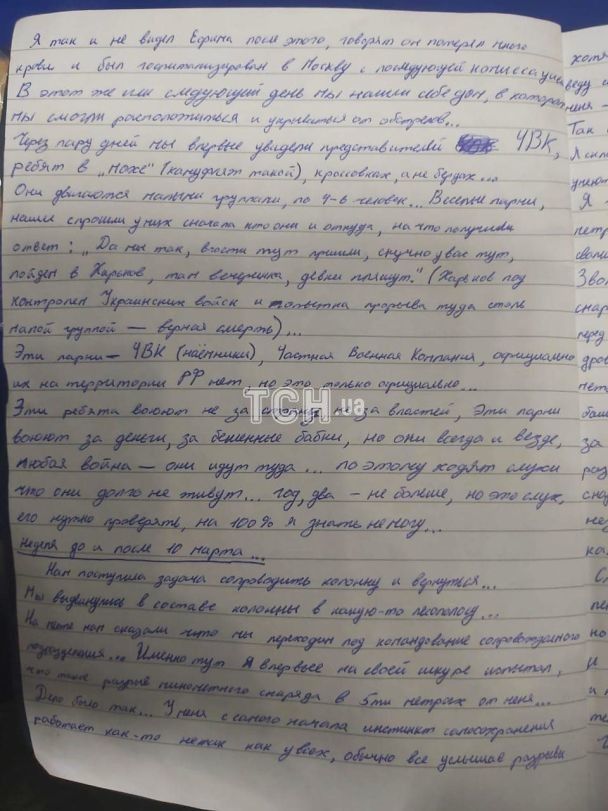 Я так и не видел Ефрина после этого, говорят он потерял много
крови и был госпитализирован в Москву с последующей комиссацией
В этот же или следующий день мы нашли себе дом, в котором
мы смогли расположиться и укрываться от обстрелов...
Через пару дней мы впервые увидели представителей ЧВК,
ребят в „мохе" (камуфляж такой), кросовках, а не берцах...
Они двигаются малыми группами, по 4-6 человек... Веселые парни,
наши спрошли у них сначала кто они и откуда, на что получили
ответ: „Да мы так, в гости тут пришли, скучно у вас тут,
пойдем в Харьков, там вечеринка, девки пляшут." (Харьков под
контролем Украинских войск и попытка прорыва туда столь
малой группой — верная смерть)...
Эти парни — ЧВК (наёмники), Частная Военная Компания, официально
их на территории РФ нет, но это только официально...
Эти ребята воюют не за не за властей, эти парни
воюют за деньги, за бешенные бабки, но они всегда и везде,
любая война — они идут туда... по этому ходят слухи
что они долго не живут... год, два — не больше, но это слух,
его нужно проверять, на 100% я знать не могу...
неделя до и после 10 марта...
Нам поступила задача сопроводить колонну и вернуться...
Мы выдвинулись в составе колонны в какую-то лесополосу...
На месте нам сказали что мы переходим под командование сопровожданого
подразделения... Именно тут я впервые на своей шкуре испытал,
что такое разрыв минометного снаряда в 5ти метрах от меня...
Дело было так... У меня с самого начала инстинкт самосохранения
работает как-то не так как у всех, обычно все услышав разрывы
ТСН.ua
хотя
веду
меня
Так
Я
петр
Звон
снар
перед
за
раз